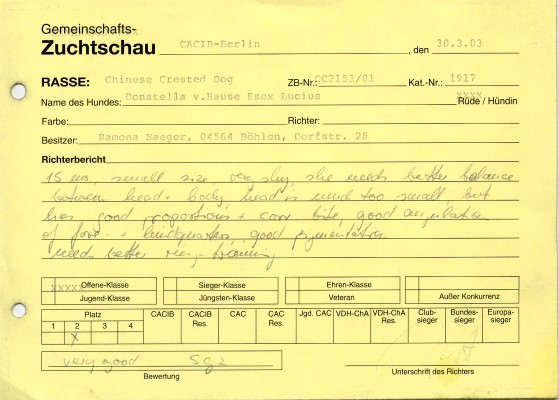 Gemeinschafts-
Zuchtschau CACIB-Berlin , den 30.3.03
RASSE: Chinese Crested Dog ZB-Nr.: CC2153/01 Kat.-Nr.: 1917
Name des Hundes: Donatella v.Hause Esox Lucius Rüde / Hündin
Farbe: Richter:
Besitzer: Ramona Saeger, 04564 Böhlen, Dorfstr. 28
Richterbericht
15 ms, small size, very shy, she needs better balance
between head + body, head is much too small, but
has good proportions + corr bite, good angulation
of fore- + hindquarters, good pigmentation
need better ring-training
Offene-Klasse Sieger-Klasse Ehren-Klasse
Jugend-Klasse Jüngsten-Klasse Veteran Außer Konkurrenz
Platz CACIB CACIB Res. CAC CAC Res. Jgd. CAC VDH-ChA VDH-ChA Res. Club-sieger Bundes-sieger Europa-sieger
1 2 3 4
X
very good Sg 2
Bewertung Unterschrift des Richters